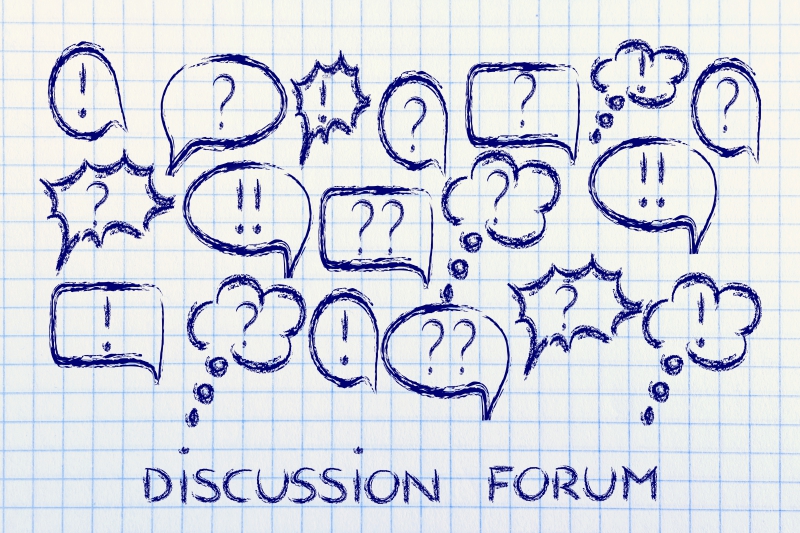 ! ? ! ? ? ! ?
? !! ?? ? !!
! ? ! ?? ? !
DiSCUSSiON FORUM